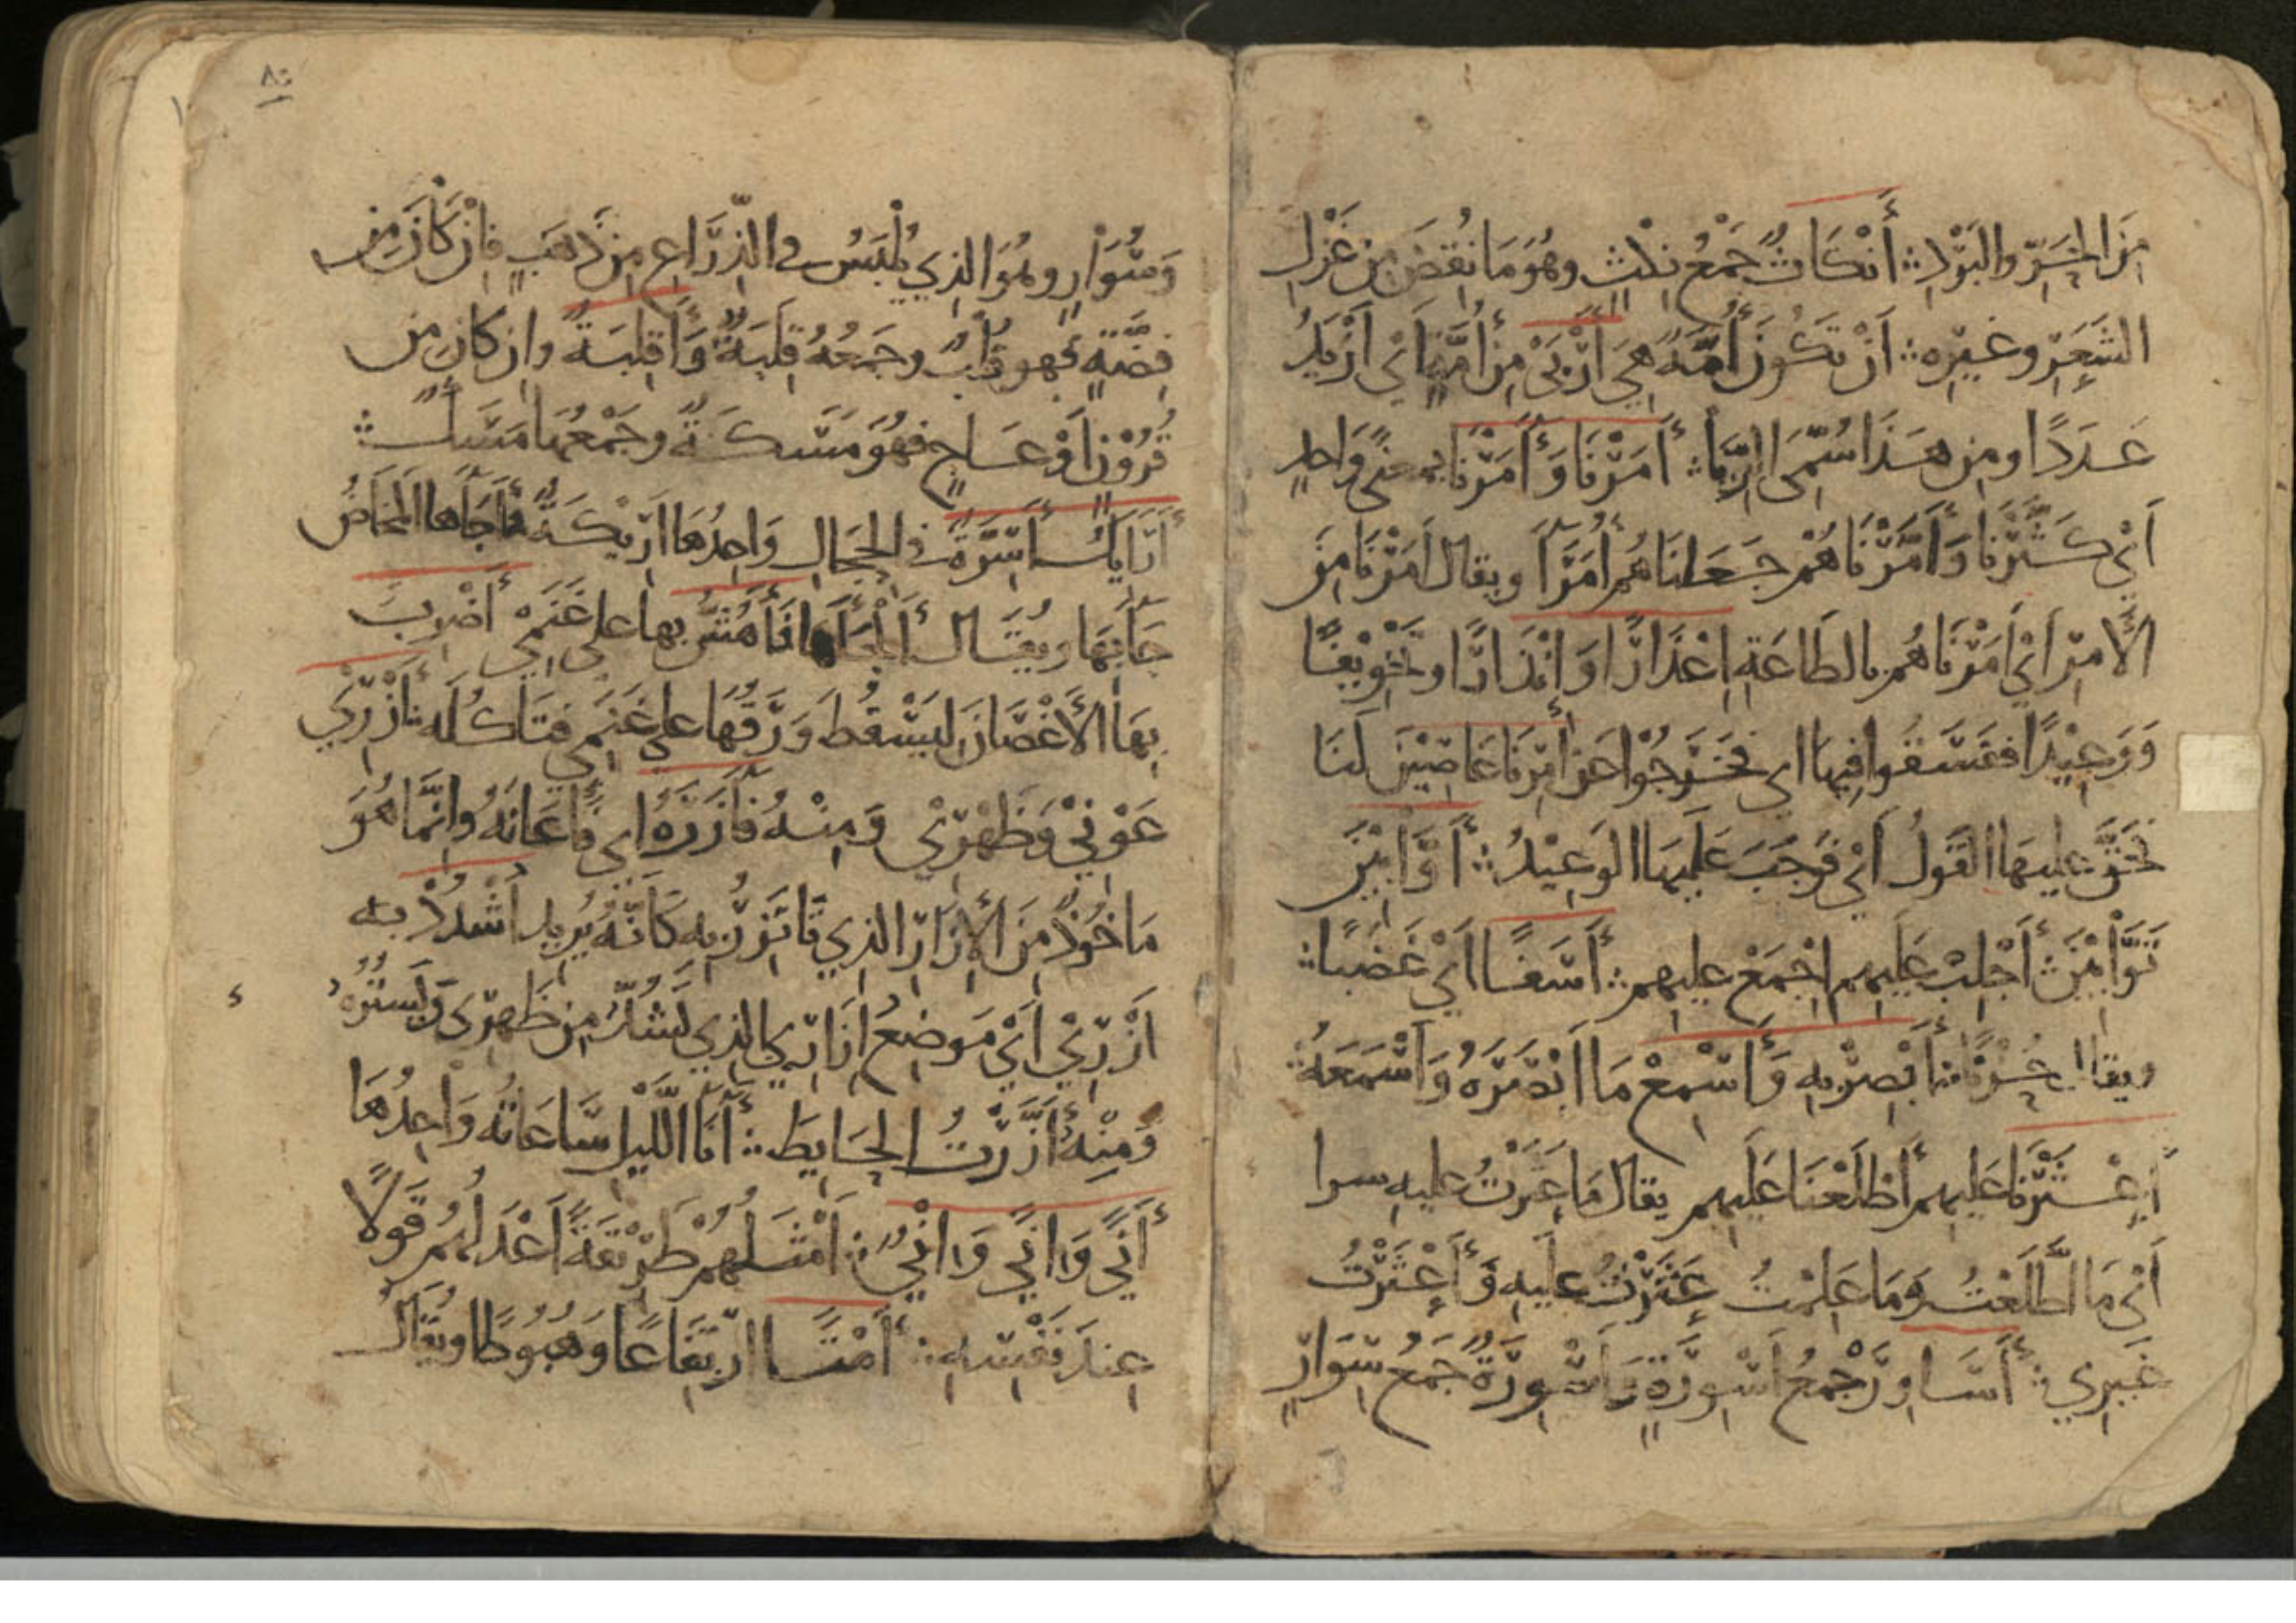 مِنَ الحَرِّ والبَرْدِ ؞ أَنْكَاثٌ جَمْعُ نِكْثٍ وهُوَ مَا نُقِضَ مِن غَزْلِ
الشَّعَرِ وغَيْرِه ؞ أَنْ تَكُونَ أُمَّةٌ هِيَ أَرْبَى مِنْ أُمَّةٍ أَيْ أَزْيَدُ
عَدَدًا ومِن هَذَا سُمِّيَ الرِّبَا ؞ أَمَرْنَا وَأَمَرْنَا بمعنًى وَاحدٍ
أَيْ كَثَّرْنَا وَأَمَّرْنَاهُمْ جَعَلنَاهُم أُمَرَآ ويقال أَمَرْنَا مِنَ
الأَمْرِ أَيْ أَمَرْنَاهُم بالطَاعَةِ إِعْذَارًا وَإِنْذَارًا وتَخْوِيفًا
وَوَعِيْدًا ففَسَقُوا فِيهَا اي فخَرَجُوْا عَنْ أَمْرِنَا عَاصِيْنَ لَنَا
فَحَقَّ عليهَا القَوْلُ أَيْ فَوَجَبَ عَلَيهَا الوَعِيْدُ ؞ أَوَّابِيْنَ
تَوَّابِيْنَ ؞ أَجْلِبْ عَلَيهِم اجْمَعْ عليهم ؞ أَسَفًا أَيْ غَضَبًا ؞
ويقال حُزْنًا ؞ أَبْصِرْ بِهِ وَأَسْمِعْ مَا أَبْصَرَهُ وَأَسْمَعَهُ ؞
أَعْثَرْنَا عَلَيهِم أَطْلَعْنَا عَلَيهِم يقال مَا عَثَرْتُ عليهِ سرا
أَيْ مَا اطَّلَعْتُ وَمَا عَلِمْتُ عَثَرْتُ عليهِ وَأَعْثَرْتُ
غَيرِي ؞ أَسَاوِرَ جَمْعُ أَسْوِرَةٍ وَأَسْوِرَةٌ جَمْعُ سِوَارٍ
وَسُوَارٍ وهُوَ الذِي يُلْبَسُ في الذِّرَاعِ مِنْ ذَهَبٍ فإنْ كَانَ مِن
فِضَّةٍ فهو قُلْبٌ وجَمعُهُ قِلَبَةٌ وَأَقْلِبَةٌ وان كَانَ مِن
قُرُوْنٍ أَوْ عَاجٍ فهُوَ مَسَكَةٌ وجَمْعُهَا مَسَكٌ ؞
أَرَايِكُ أَسِرَّةٌ في الحِجَالِ وَاحِدُهَا أَرِيْكَةٌ فَأَجَآهَا المَخَاضُ
جَآبِهَا ويُقَال أَلْجَأَهَا أَهُشُّ بها على غَنَمِي أَضْرِبُ
بِهَا الأَغْصَانَ ليَسْقُطَ وَرَقُهَا على غَنَمِي فتَاكُلَه ؞ أَزْرِيْ
عَوْنِيْ وَظَهْرِيْ وَمِنْهُ فَآزَرَهُ اي فَأَعَانَهُ وانَّمَا هُوَ
مَاخُوذٌ مِنَ الإِزَارِ الذِي تَاتَزِرُ بِه كَانَّهُ يُرِيد أُشْدُدْ به
أَزْرِيْ أَيْ مَوضِعُ ازَارِي الذِي يَشُدُّ مِن ظَهْرِي ويَستُرُه
وَمِنْهُ أَزَّرْتُ الحَايِطَ ؞ آنَا اللَّيْلِ سَاعَاتُه وَاحِدُهَا
أَنًى وَاِنًى وَاِنْيٌ ؞ أَمْثَلُهُمْ طَرِيْقَةً أَعْدَلُهُم قَوْلًا
عِندَ نَفْسِه ؞ أَمْتًا ارْتِفَاعًا وَهُبُوطًا ويُقَال